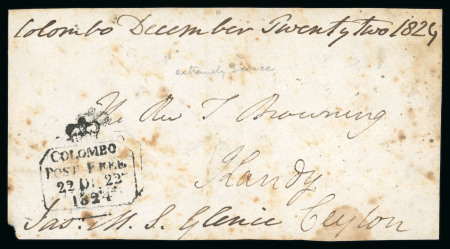 Colombo December Twenty two 1824
extremely scarce
The Rev T Browning
COLOMBO
POST FREE
22 DE 22
1824
Kandy
Jas. M. S. Glenie Ceylon